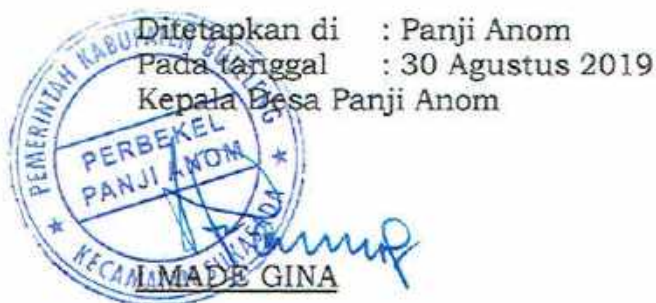 Ditetapkan di : Panji Anom
Pada tanggal : 30 Agustus 2019
Kepala Desa Panji Anom
PEMERINTAH KABUPATEN BULELENG
PERBEKEL
PANJI ANOM
KECAMATAN SUKASADA
I MADE GINA